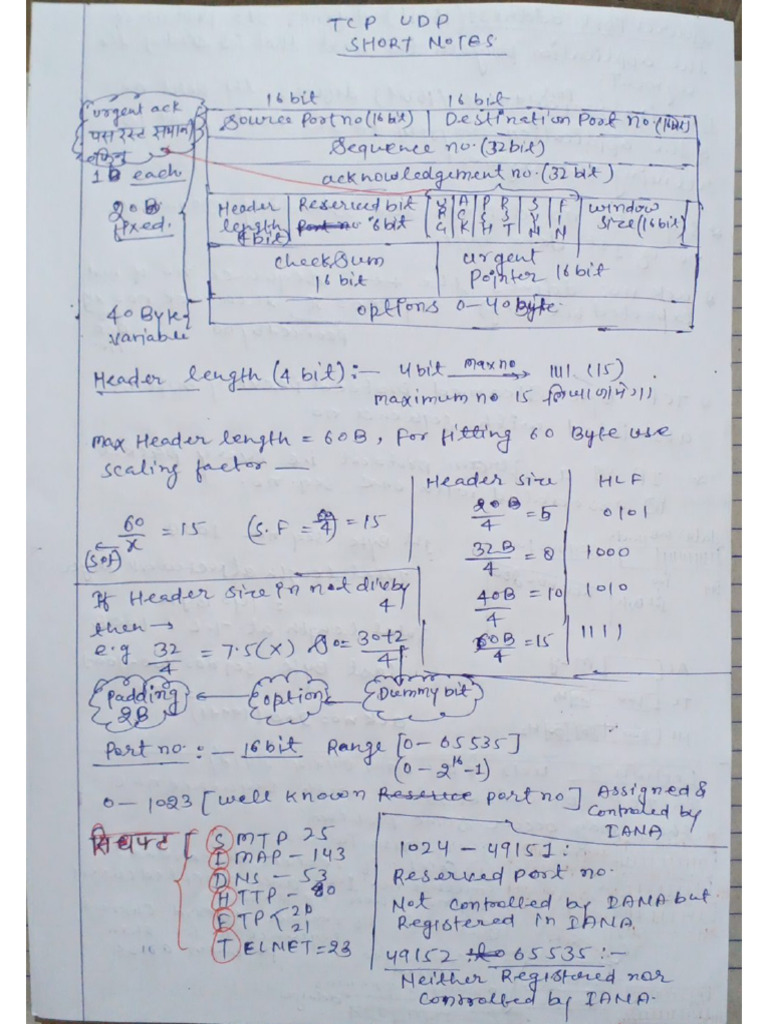 TCP UDP
SHORT NOTES
16 bit 16 bit
urgent ack
1B each
20B
fixed.
40 Byte
variable
Source Port no (16 bit) Destination Port no. (16 bit)
Sequence no. (32 bit)
acknowledgement no. (32 bit)
Header length (4 bit) Reserved bit 6 bit URG ACK PSH RST SYN FIN window size (16 bit)
checksum 16 bit urgent Pointer 16 bit
options 0-40 Byte
Header length (4 bit) :- 4 bit max no → 1111 (15)
maximum no 15
max Header length = 60B, for fitting 60 Byte use
scaling factor —
60/x = 15 (S.F = 60/4) = 15
(S.F)
Header size HLF
20B/4 = 5 0101
32B/4 = 8 1000
40B/4 = 10 1010
60B/4 = 15 1111
If Header size in not diveby 4
then →
e.g 32/4 = 7.5 (X) So = 30+2/4
Padding 2B ← option ← Dummy bit
Port no :- 16 bit Range [0 - 65535]
(0 - 2^16 - 1)
0 - 1023 [well known Reserve port no] Assigned &
Controlled by
IANA
SMTP 25
IMAP - 143
DNS - 53
HTTP - 80
FTP 20 21
TELNET = 23
1024 - 49151 :
Reserved port no.
Not controlled by IANA but
Registered in IANA
49152 65535 :-
Neither Registered nor
Controlled by IANA.